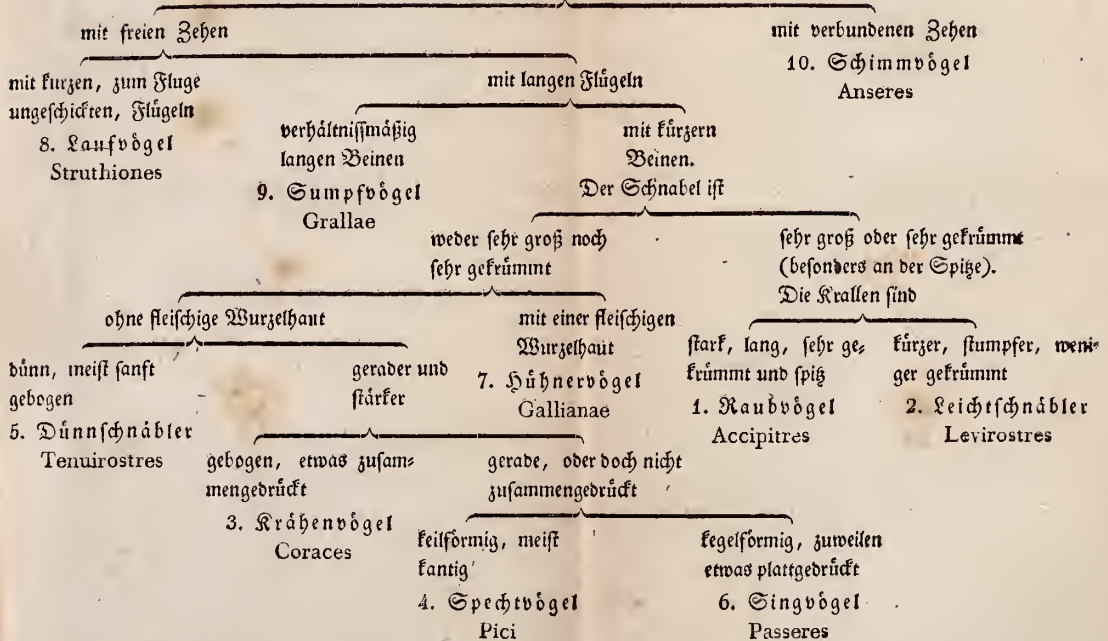 mit freien Zehen
mit verbundenen Zehen
10. Schimmvögel
Anseres
mit kurzen, zum Fluge
ungeschickten, Flügeln
8. Laufvögel
Struthiones
mit langen Flügeln
verhältnissmäßig
langen Beinen
9. Sumpfvögel
Grallae
mit kürzern
Beinen.
Der Schnabel ist
weder sehr groß noch
sehr gekrümmt
sehr groß oder sehr gekrümmt
(besonders an der Spitze).
Die Krallen sind
ohne fleischige Wurzelhaut
mit einer fleischigen
Wurzelhaut
7. Hühnervögel
Gallianae
stark, lang, sehr ge-
krümmt und spitz
1. Raubvögel
Accipitres
kürzer, stumpfer, weni-
ger gekrümmt
2. Leichtschnäbler
Levirostres
dünn, meist sanft
gebogen
5. Dünnschnäbler
Tenuirostres
gerader und
stärker
gebogen, etwas zusam-
mengedrückt
3. Krähenvögel
Coraces
gerade, oder doch nicht
zusammengedrückt
keilförmig, meist
kantig
4. Spechtvögel
Pici
kegelförmig, zuweilen
etwas plattgedrückt
6. Singvögel
Passeres